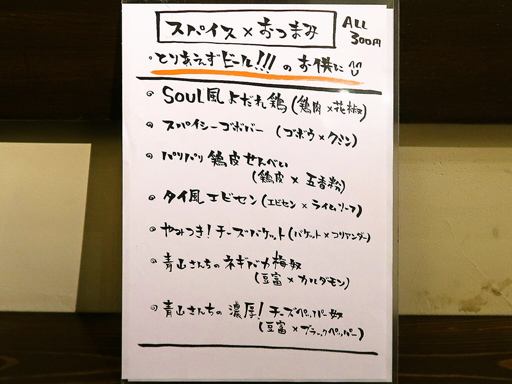 スパイス×おつまみ
ALL
300円
・とりあえずビール!!! の お供に
・SOUL風よだれ鶏(鶏肉×花椒)
・スパイシーゴボバー (ゴボウ×クミン)
・パリパリ鶏皮せんべい
(鶏皮×五香粉)
・タイ風エビセン(エビセン×ライムリーフ)
・やみつき!チーズバケット(バケット×コリアンダー)
・青山さんちのネギバカ梅奴
(豆富×カルダモン)
・青山さんちの濃厚!チーズペッパー奴
(豆富×ブラックペッパー)